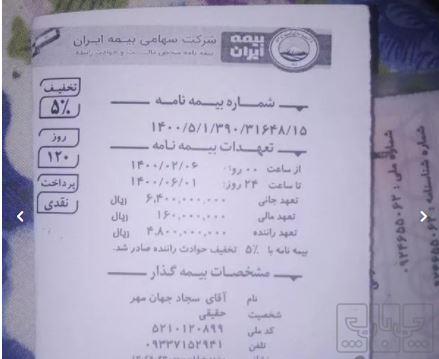 شرکت سهامی بیمه ایران
بیمه ایران
بیمه نامه شخص ثالث و حوادث راننده
تخفیف
۵%
روز
۱۲۰
پرداخت
نقدی
شماره بیمه نامه
۱۴۰۰/۵/۱/۳۹۰/۳۱۶۴۸/۱۵
تعهدات بیمه نامه
از ساعت ۰۰ روز: ۱۴۰۰/۰۲/۰۶
تا ساعت ۲۴ روز: ۱۴۰۰/۰۶/۰۱
تعهد جانی ۶,۴۰۰,۰۰۰,۰۰۰ ریال
تعهد مالی ۱۶۰,۰۰۰,۰۰۰ ریال
تعهد راننده ۴,۸۰۰,۰۰۰,۰۰۰ ریال
بیمه نامه با ۵% تخفیف حوادث راننده صادر شد.
مشخصات بیمه گذار
نام آقای سجاد جهان مهر
شخصیت حقیقی
کد ملی ۵۲۱۰۱۲۰۸۹۹
تلفن ۰۹۳۳۷۱۵۲۹۴۱
شماره ملی :
شماره شناسنامه :